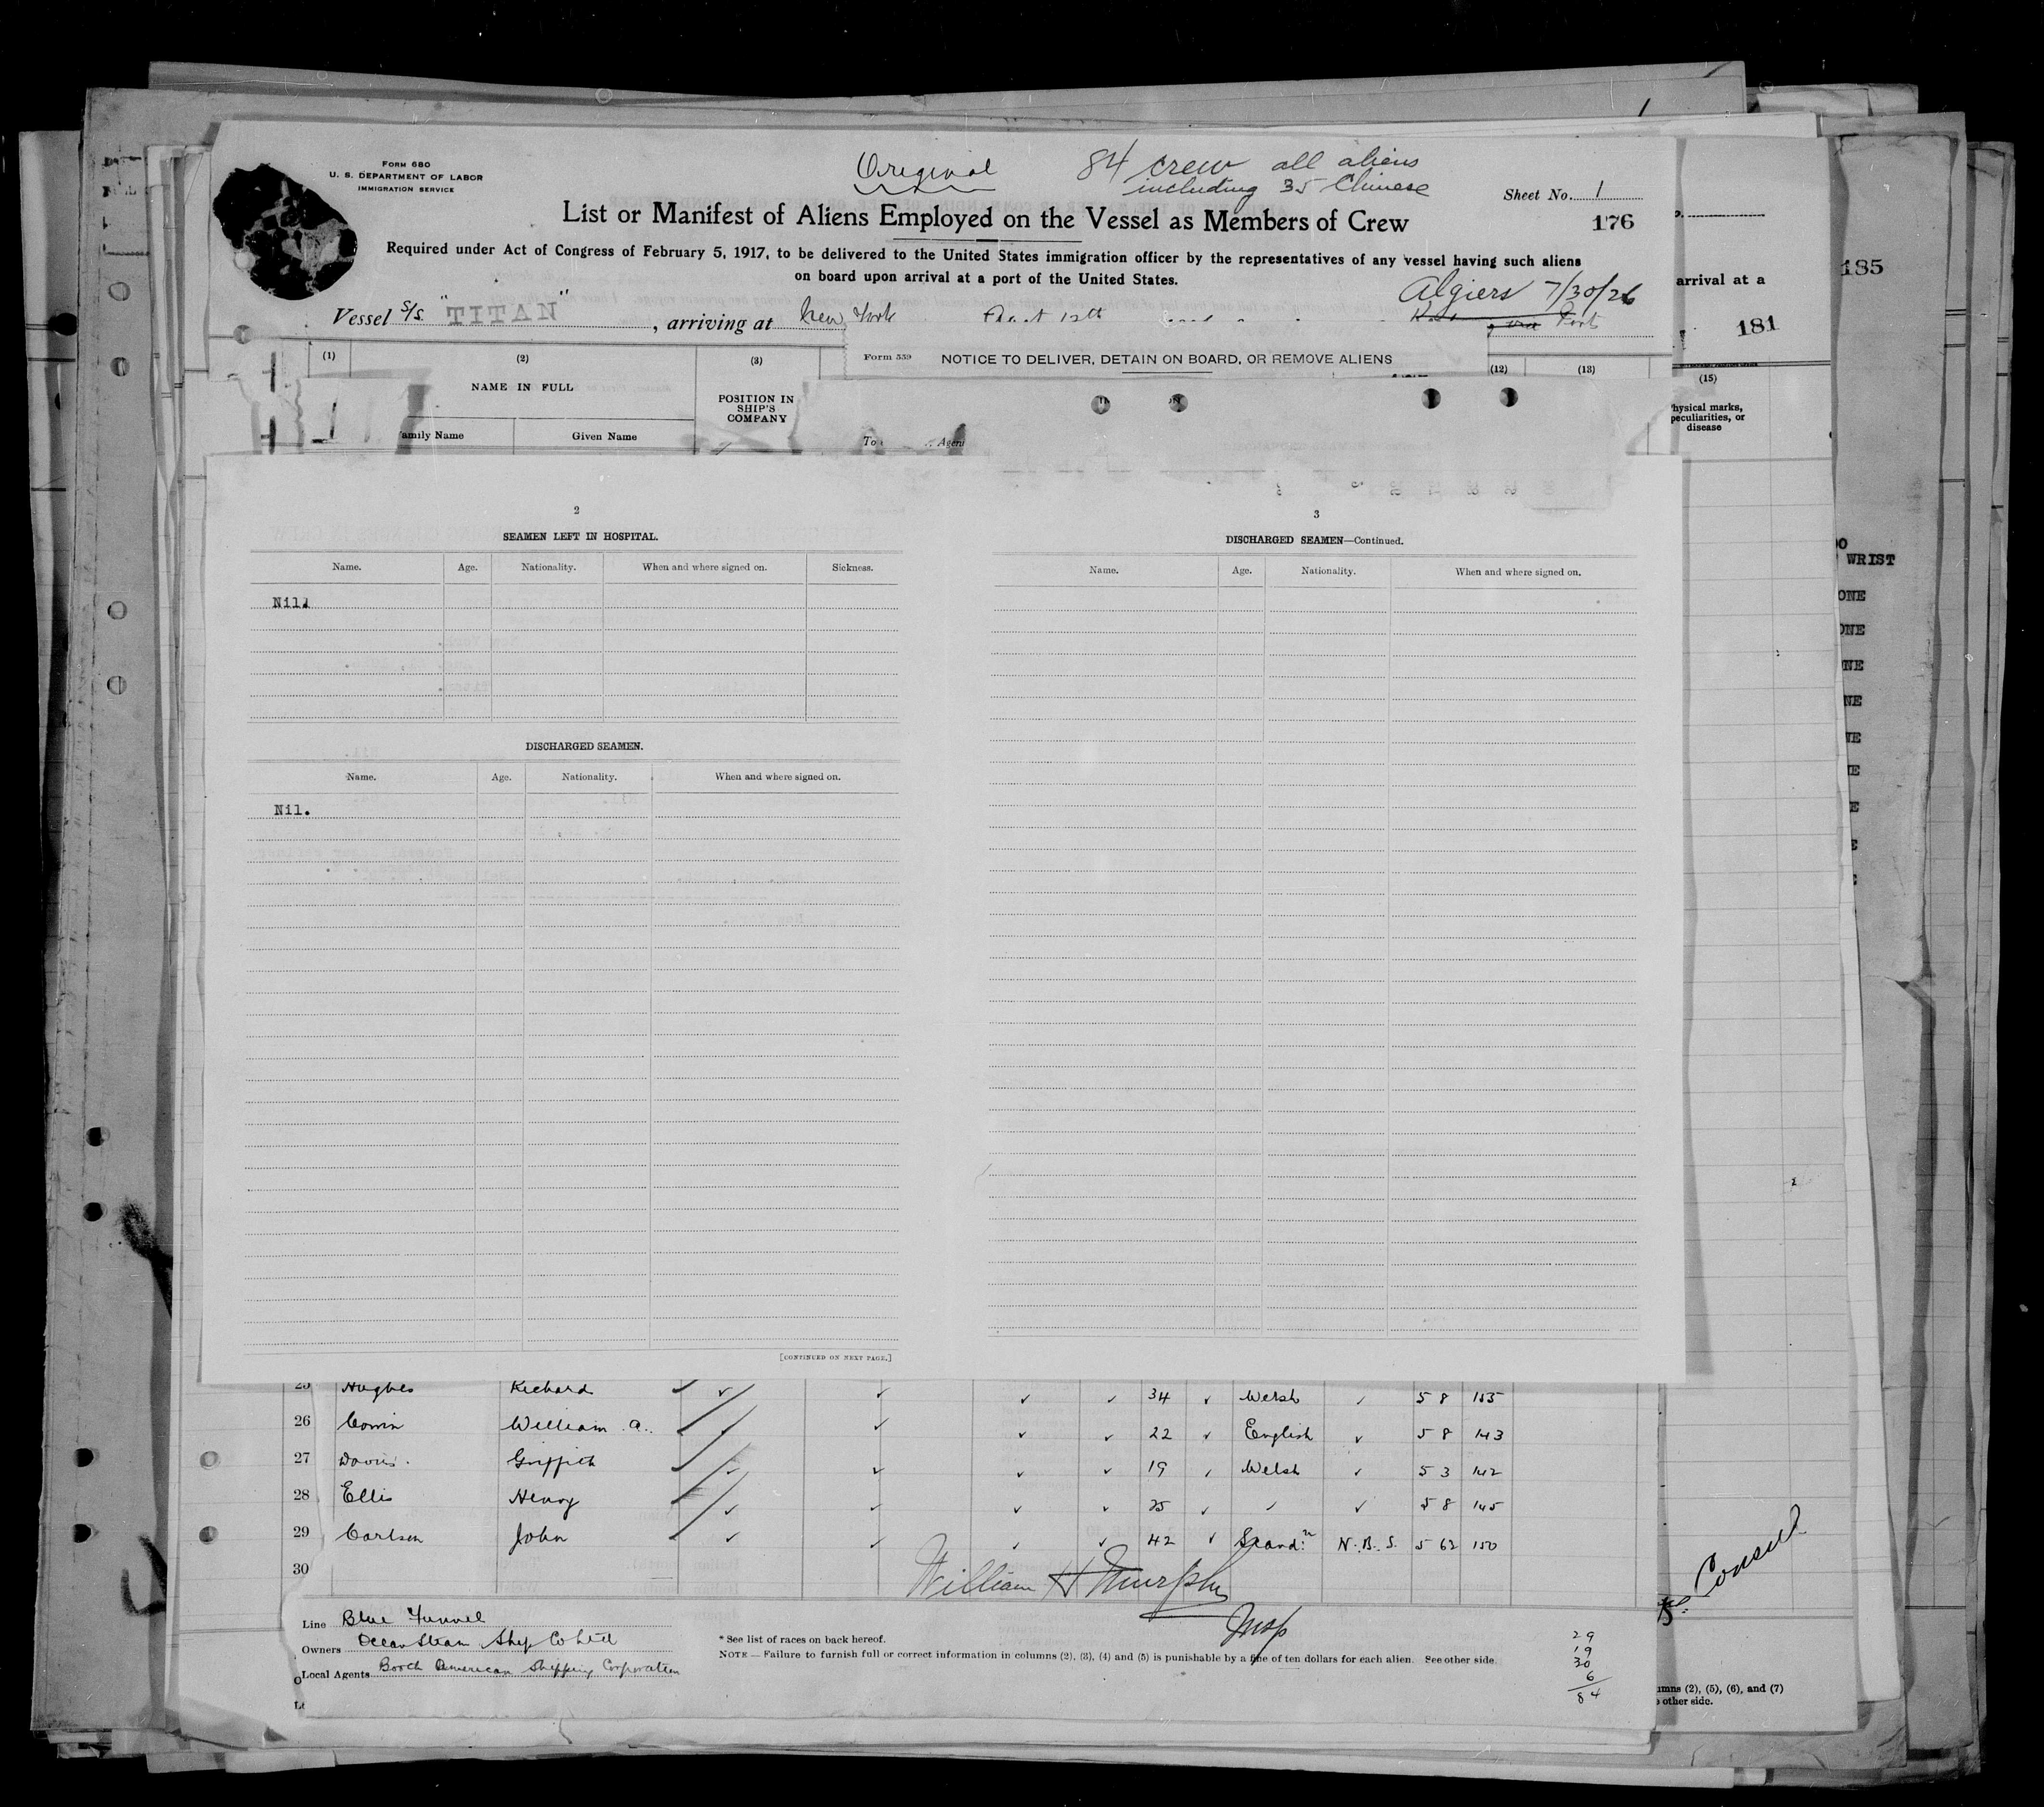 Form 680
U. S. DEPARTMENT OF LABOR
IMMIGRATION SERVICE
Original
84 crew all aliens
including 35 Chinese
Sheet No. 1
List or Manifest of Aliens Employed on the Vessel as Members of Crew
176
Required under Act of Congress of February 5, 1917, to be delivered to the United States immigration officer by the representatives of any vessel having such aliens
on board upon arrival at a port of the United States.
arrival at a
185
Algiers 7/30/26
Vessel S/S. "TITAN", arriving at New York 12th
181
Form 559 NOTICE TO DELIVER, DETAIN ON BOARD, OR REMOVE ALIENS
(1) (2) (3) (12) (13) (15)
NAME IN FULL
POSITION IN
SHIP'S
COMPANY
Physical marks,
peculiarities, or
disease
Family Name Given Name
To Agent
2
SEAMEN LEFT IN HOSPITAL.
Name. Age. Nationality. When and where signed on. Sickness.
Nil.
DISCHARGED SEAMEN.
Name. Age. Nationality. When and where signed on.
Nil.
[CONTINUED ON NEXT PAGE.]
3
DISCHARGED SEAMEN—Continued.
Name. Age. Nationality. When and where signed on.
WRIST
25 Hughes Richard ✓ ✓ ✓ ✓ ✓ 34 ✓ Welsh ✓ 5 8 155
26 William A. ✓ ✓ ✓ ✓ 22 ✓ English ✓ 5 8 143
27 Davies. Griffith ✓ ✓ ✓ ✓ ✓ 19 ✓ Welsh ✓ 5 3 142
28 Ellis Henry ✓ ✓ ✓ ✓ 25 ✓ ✓ ✓ 5 8 145
29 Carlson John ✓ ✓ ✓ ✓ ✓ 42 ✓ Scandn N. B. S. 5 6½ 150
30
William H Murphy
Insp
Consul
Line Blue Funnel
Owners Ocean Steam Ship Co Ltd
Local Agents Booth American Shipping Corporation
* See list of races on back hereof.
NOTE — Failure to furnish full or correct information in columns (2), (3), (4) and (5) is punishable by a fine of ten dollars for each alien. See other side.
29
19
30
6
84
umns (2), (5), (6), and (7)
other side.